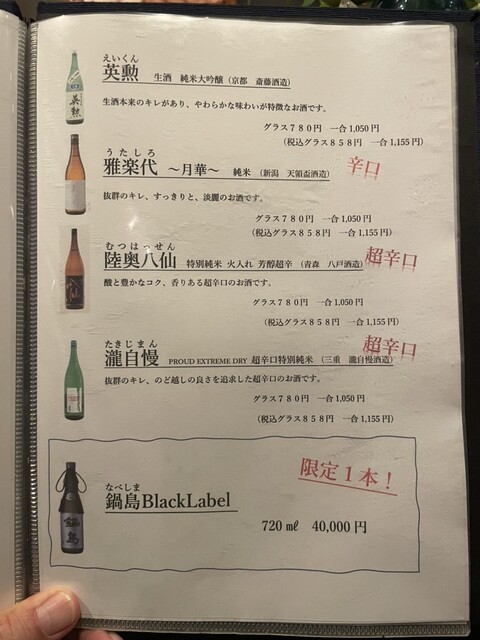 えいくん
英勲 生酒 純米大吟醸(京都 斎藤酒造)
生酒本来のキレがあり、やわらかな味わいが特徴なお酒です。
グラス780円 一合1,050円
(税込グラス858円 一合1,155円)
うたしろ
雅楽代 ～月華～ 純米 (新潟 天領盃酒造)
辛口
抜群のキレ、すっきりと、淡麗のお酒です。
グラス780円 一合1,050円
(税込グラス858円 一合1,155円)
むつはっせん
陸奥八仙 特別純米 火入れ 芳醇超辛 (青森 八戸酒造)
超辛口
酸と豊かなコク、香りある超辛口のお酒です。
グラス780円 一合1,050円
(税込グラス858円 一合1,155円)
たきじまん
瀧自慢 PROUD EXTREME DRY 超辛口特別純米 (三重 瀧自慢酒造)
超辛口
抜群のキレ、のど越しの良さを追求した超辛口のお酒です。
グラス780円 一合1,050円
(税込グラス858円 一合1,155円)
限定1本！
なべしま
鍋島BlackLabel
720㎖ 40,000円
英勲
鍋島